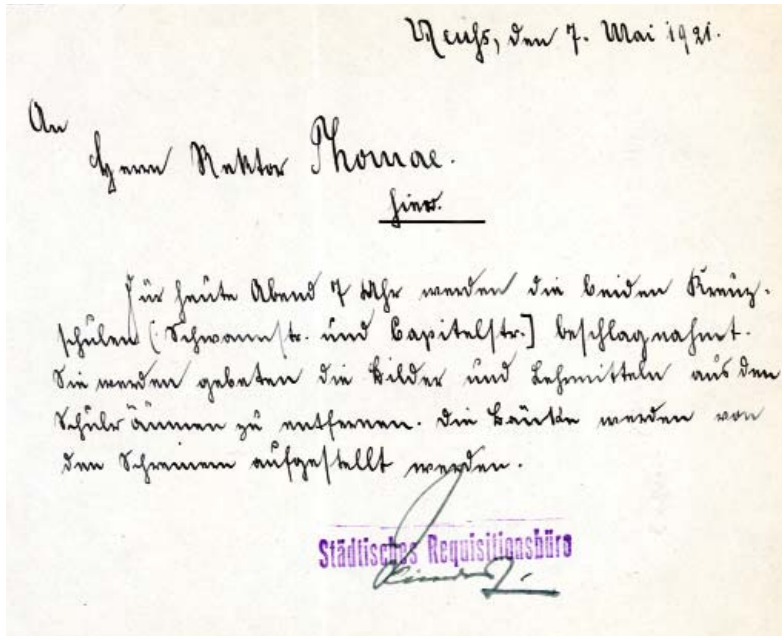 Neuss, den 7. Mai 1921.
An
Herrn Rektor Thomae.
hier.
Für heute Abend 7 Uhr werden die beiden Kreuz-
schulen (Schwannstr. und Capitelstr.) beschlagnahmt.
Sie werden gebeten die Bilder und Lehrmitteln aus den
Schulräumen zu entfernen. Die Bänke werden von
den Schreinern aufgestellt werden.
Städtisches Requisitionsbüro